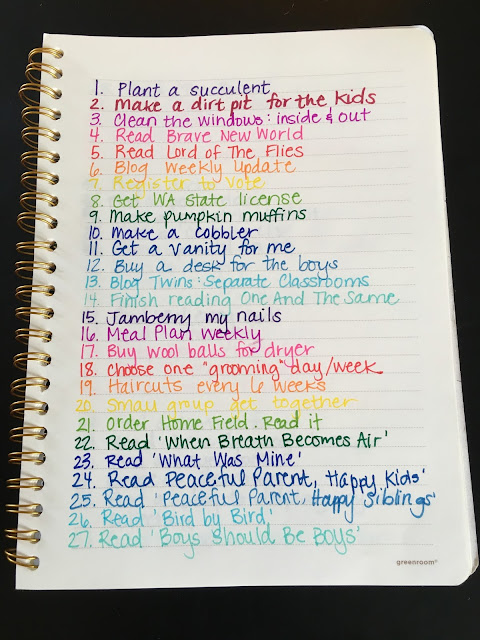 1. Plant a succulent
2. Make a dirt pit for the kids
3. Clean the windows: inside & out
4. Read Brave New World
5. Read Lord of The Flies
6. Blog Weekly Update
7. Register to Vote
8. Get WA state license
9. Make pumpkin muffins
10. Make a cobbler
11. Get a vanity for me
12. Buy a desk for the boys
13. Blog Twins: Separate Classrooms
14. Finish reading One And The Same
15. Jamberry my nails
16. Meal Plan weekly
17. Buy wool balls for dryer
18. Choose one "grooming" day/week
19. Haircuts every 6 weeks
20. Small group get together
21. Order Home Field. Read it
22. Read 'When Breath Becomes Air'
23. Read 'What Was Mine'
24. Read Peaceful Parent, Happy Kids'
25. Read 'Peaceful Parent, Happy Siblings'
26. Read 'Bird by Bird'
27. Read 'Boys Should Be Boys'
greenroom®